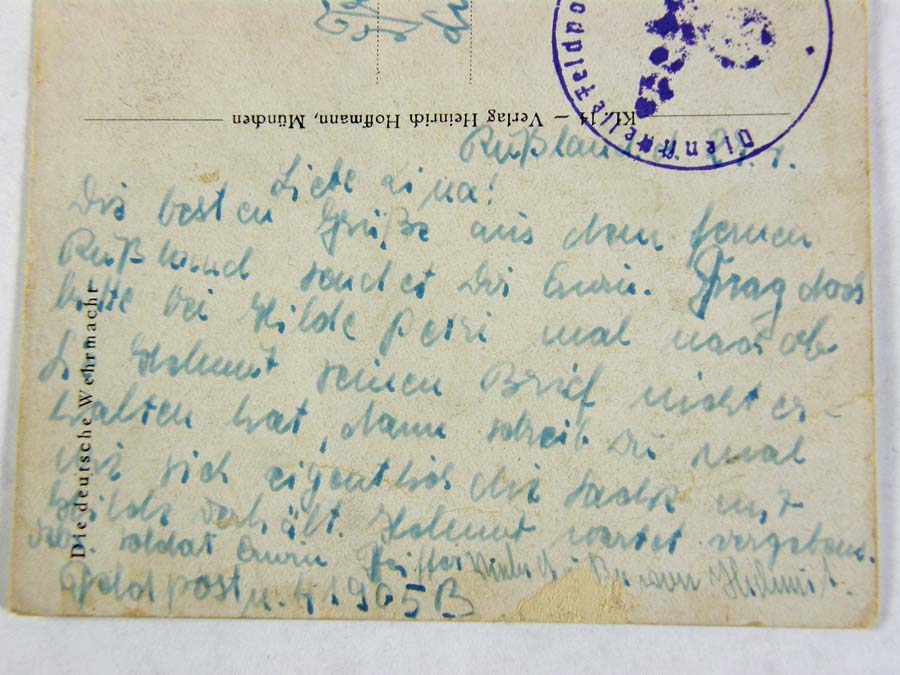 Kf. 14 – Verlag Heinrich Hoffmann, München
Dienststelle Feldpost
Die deutsche Wehrmacht
Rußland, d. 29.1.
Liebe
Die besten Grüße aus dem fernen
Rußland sendet Dir Erwin. Frag doch
bitte bei Hilde mal nach ob
Helmut seinen Brief nicht er-
halten hat, dann schreib Du mal
wie sich eigentlich die Sache mit
Hilde verhält. Helmut wartet vergebens.
Soldat Erwin
Feldpost n. 41905 B
Helmut.